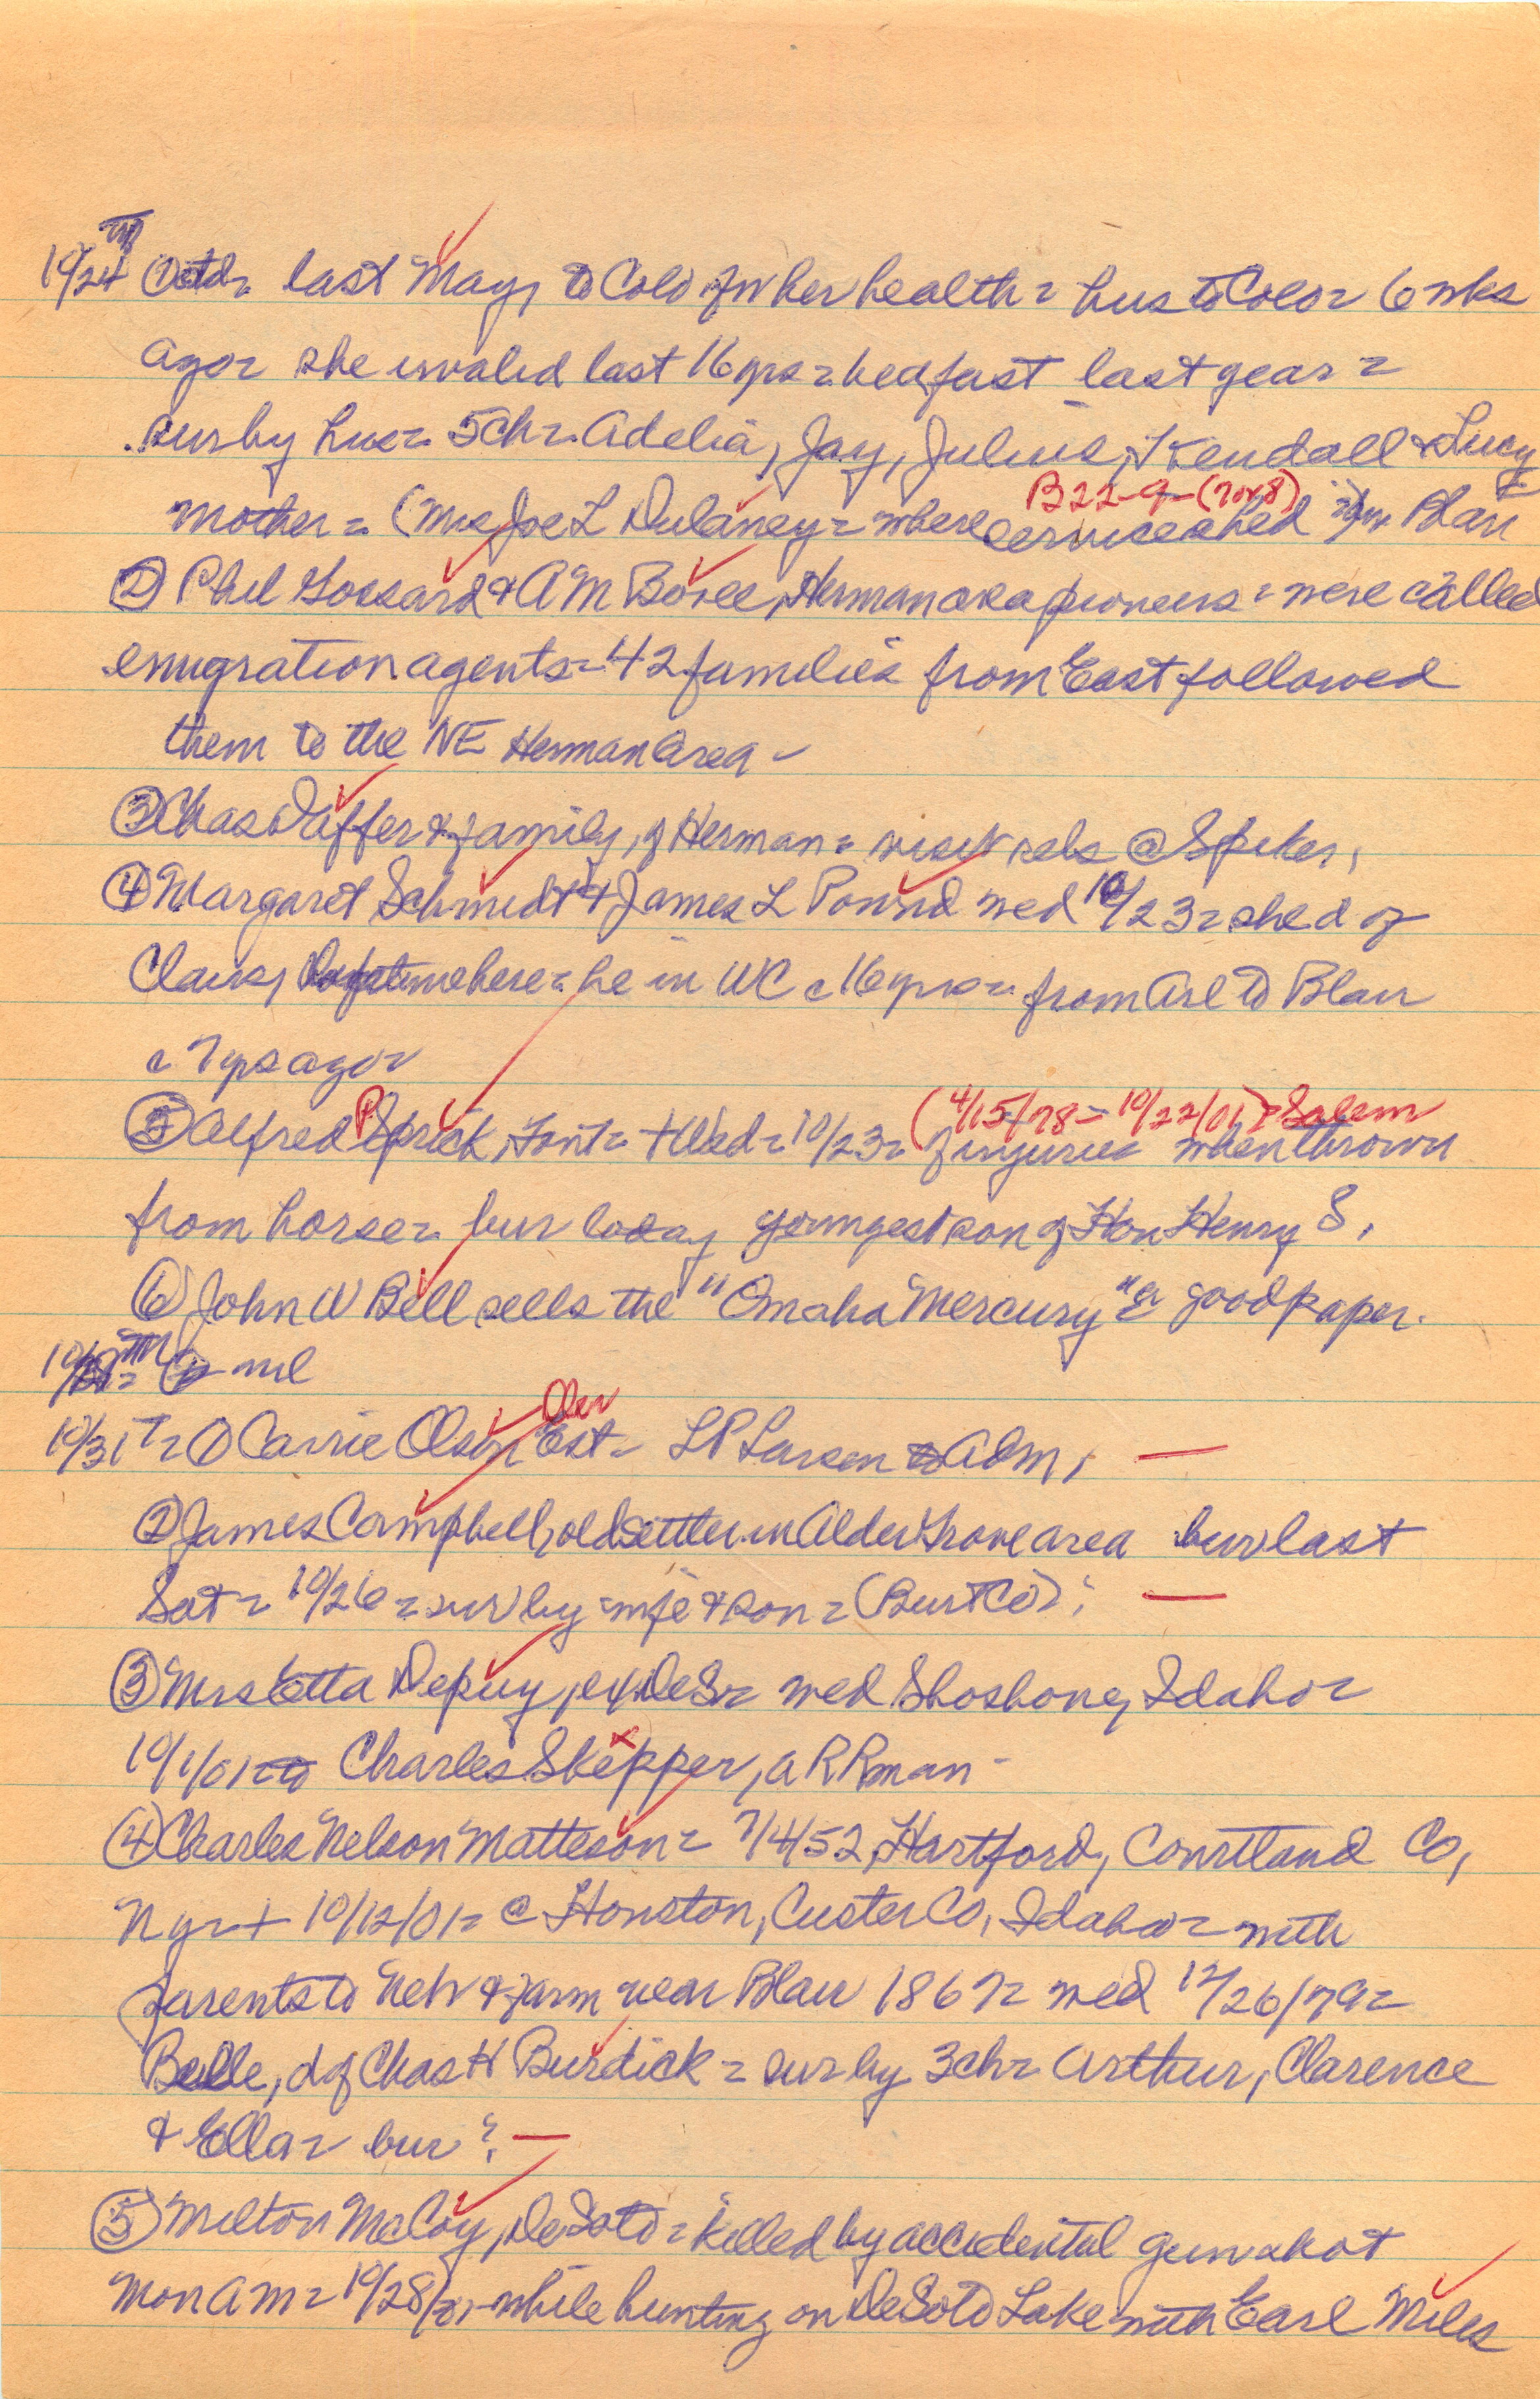 10/24 last May, to Colo for her health = hus to Colo = 6 wks
ago = she invalid last 16 yrs = bedfast last year =
sur by hus = 5 ch = Adelia, Jay, Julius, Kendall & Lucy
B22-9-(7or8)
mother = (Mrs Joe L Dulaney = where services held Blair
② Phil Gossard & AM Bovee, Herman area pioneers = were called
emigration agents = 42 families from East followed
them to the NE Herman area -
③ Chas Daffer & family, of Herman = visit rels @ Spiker,
④ Margaret Schmidt & James L Pound wed 10/23 = she d of
Claus, here = he in WC c 16 yrs = from Arl to Blair
c 7 yrs ago =
(4/15/78 = 10/22/01) = Salem
⑤ Alfred P Sprick, Font = + Wed = 10/23 = of injuries when thrown
from horse = bur today youngest son of Hon Henry S,
⑥ John W Bell sells the "Omaha Mercury" = a good paper.
nil
Olen
10/31 = ① Carrie Olson Est = LP Larsen Adm, —
② James Campbell, old settler in Alder Grove area bur last
Sat = 10/26 = sur by wife & son = (Burt Co); —
③ Mrs Etta Depuy, ex DeS = wed Shoshone, Idaho =
10/1/01 = to Charles Skepper, a RR man -
④ Charles Nelson Matteson = 7/4/52, Hartford, Courtland Co,
Ny = + 10/12/01 = @ Houston, Custer Co, Idaho = with
parents to Neb & farm near Blair 1867 = wed 12/26/79 =
Belle, d of Chas H Burdick = sur by 3 ch = Arthur, Clarence
& Ella = bur ?, —
⑤ Milton McCoy, DeSoto = killed by accidental gunshot
Mon AM = 10/28/01 = while hunting on DeSoto Lake with Earl Miles